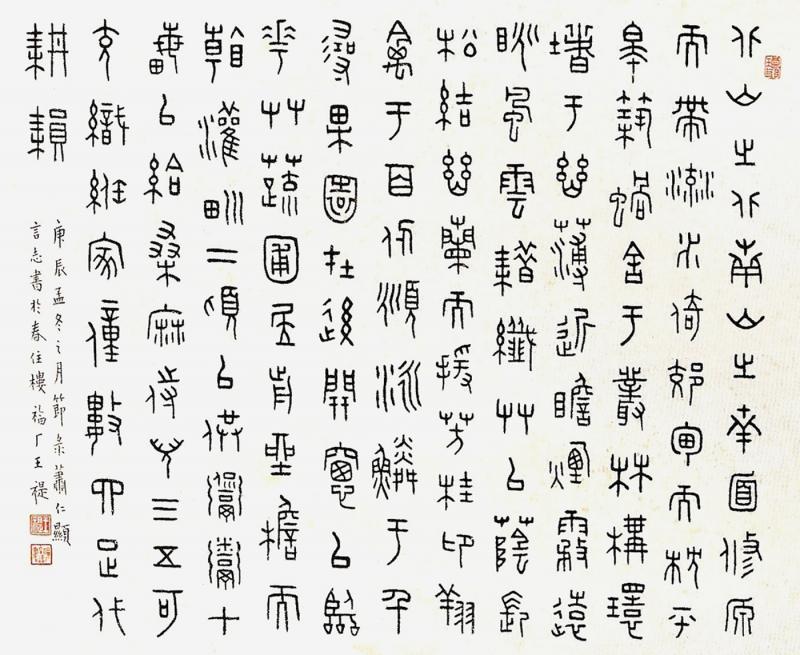 北山之北南山之南面修原
而帶流水倚郊甸而枕平
皋築蝸舍于叢林構環
堵于幽薄近瞻煙霧遠
睇風雲藉纖艸以蔭長
松結幽蘭而援芳桂卬翔
禽于百仞頫泳鱗于千
尋果園在後開窗以臨
華艸蔬圃居前坐檐而
看灌畎二頃以供饘粥十
畝以給桑麻侍兒三五可
充織紝家僮數四足代
耕耘
庚辰孟冬之月節彔蕭仁顯
言志書於春住樓福厂王禔